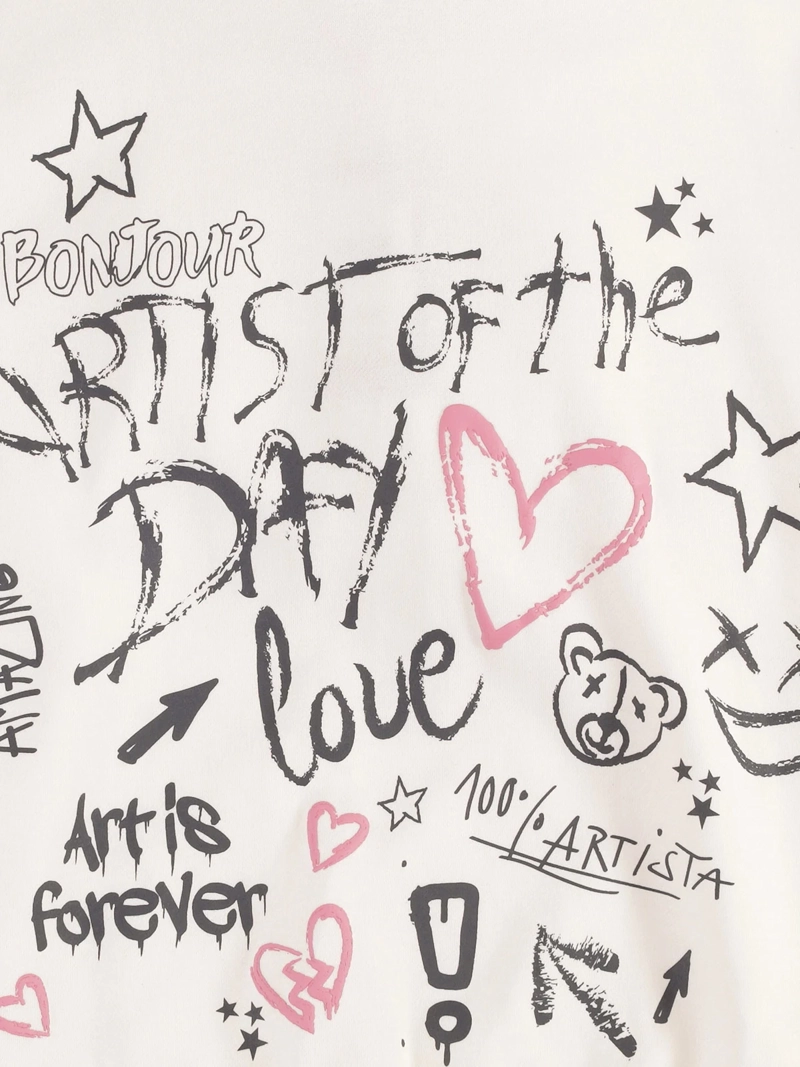 BONJOUR
ARTIST OF the
DAY
AMAZING
love
100% ARTiSTA
Art is
forever
!